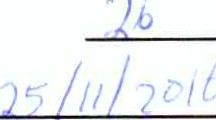 26
25/11/2016